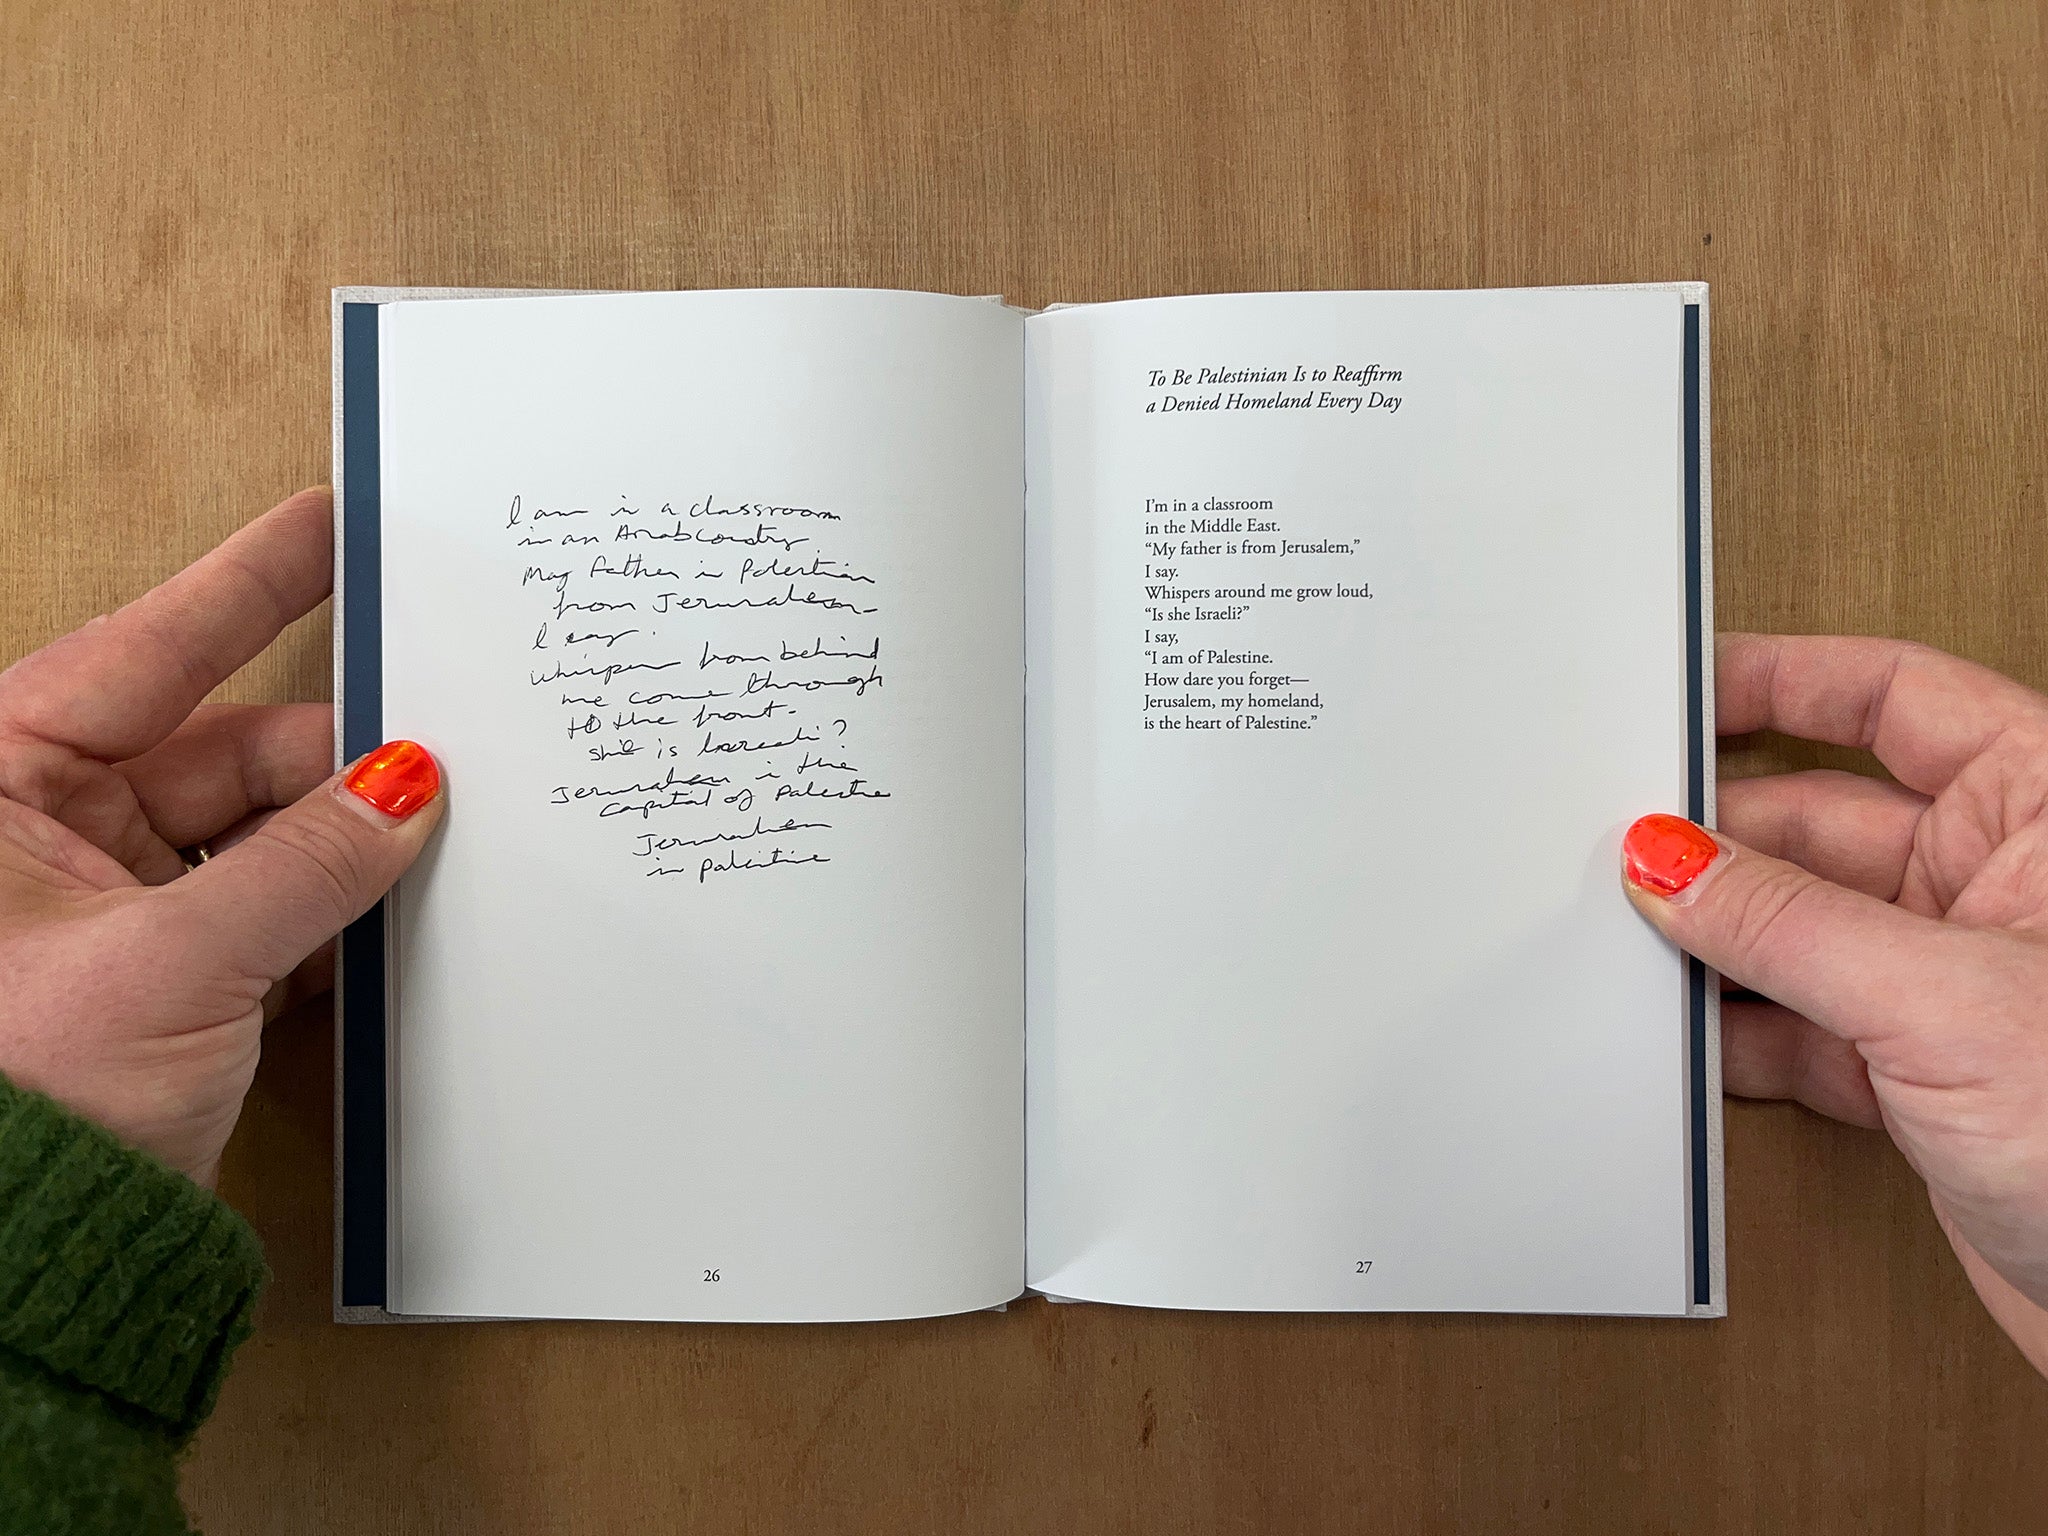 I am in a classroom
in an Arab Country
My father is Palestinian
from Jerusalem-
I say.
whispers from behind
me come through
to the front-
she is Israeli?
Jerusalem is the
capital of Palestine
Jerusalem
in Palestine
26
To Be Palestinian Is to Reaffirm
a Denied Homeland Every Day
I’m in a classroom
in the Middle East.
“My father is from Jerusalem,”
I say.
Whispers around me grow loud,
“Is she Israeli?”
I say,
“I am of Palestine.
How dare you forget—
Jerusalem, my homeland,
is the heart of Palestine.”
27